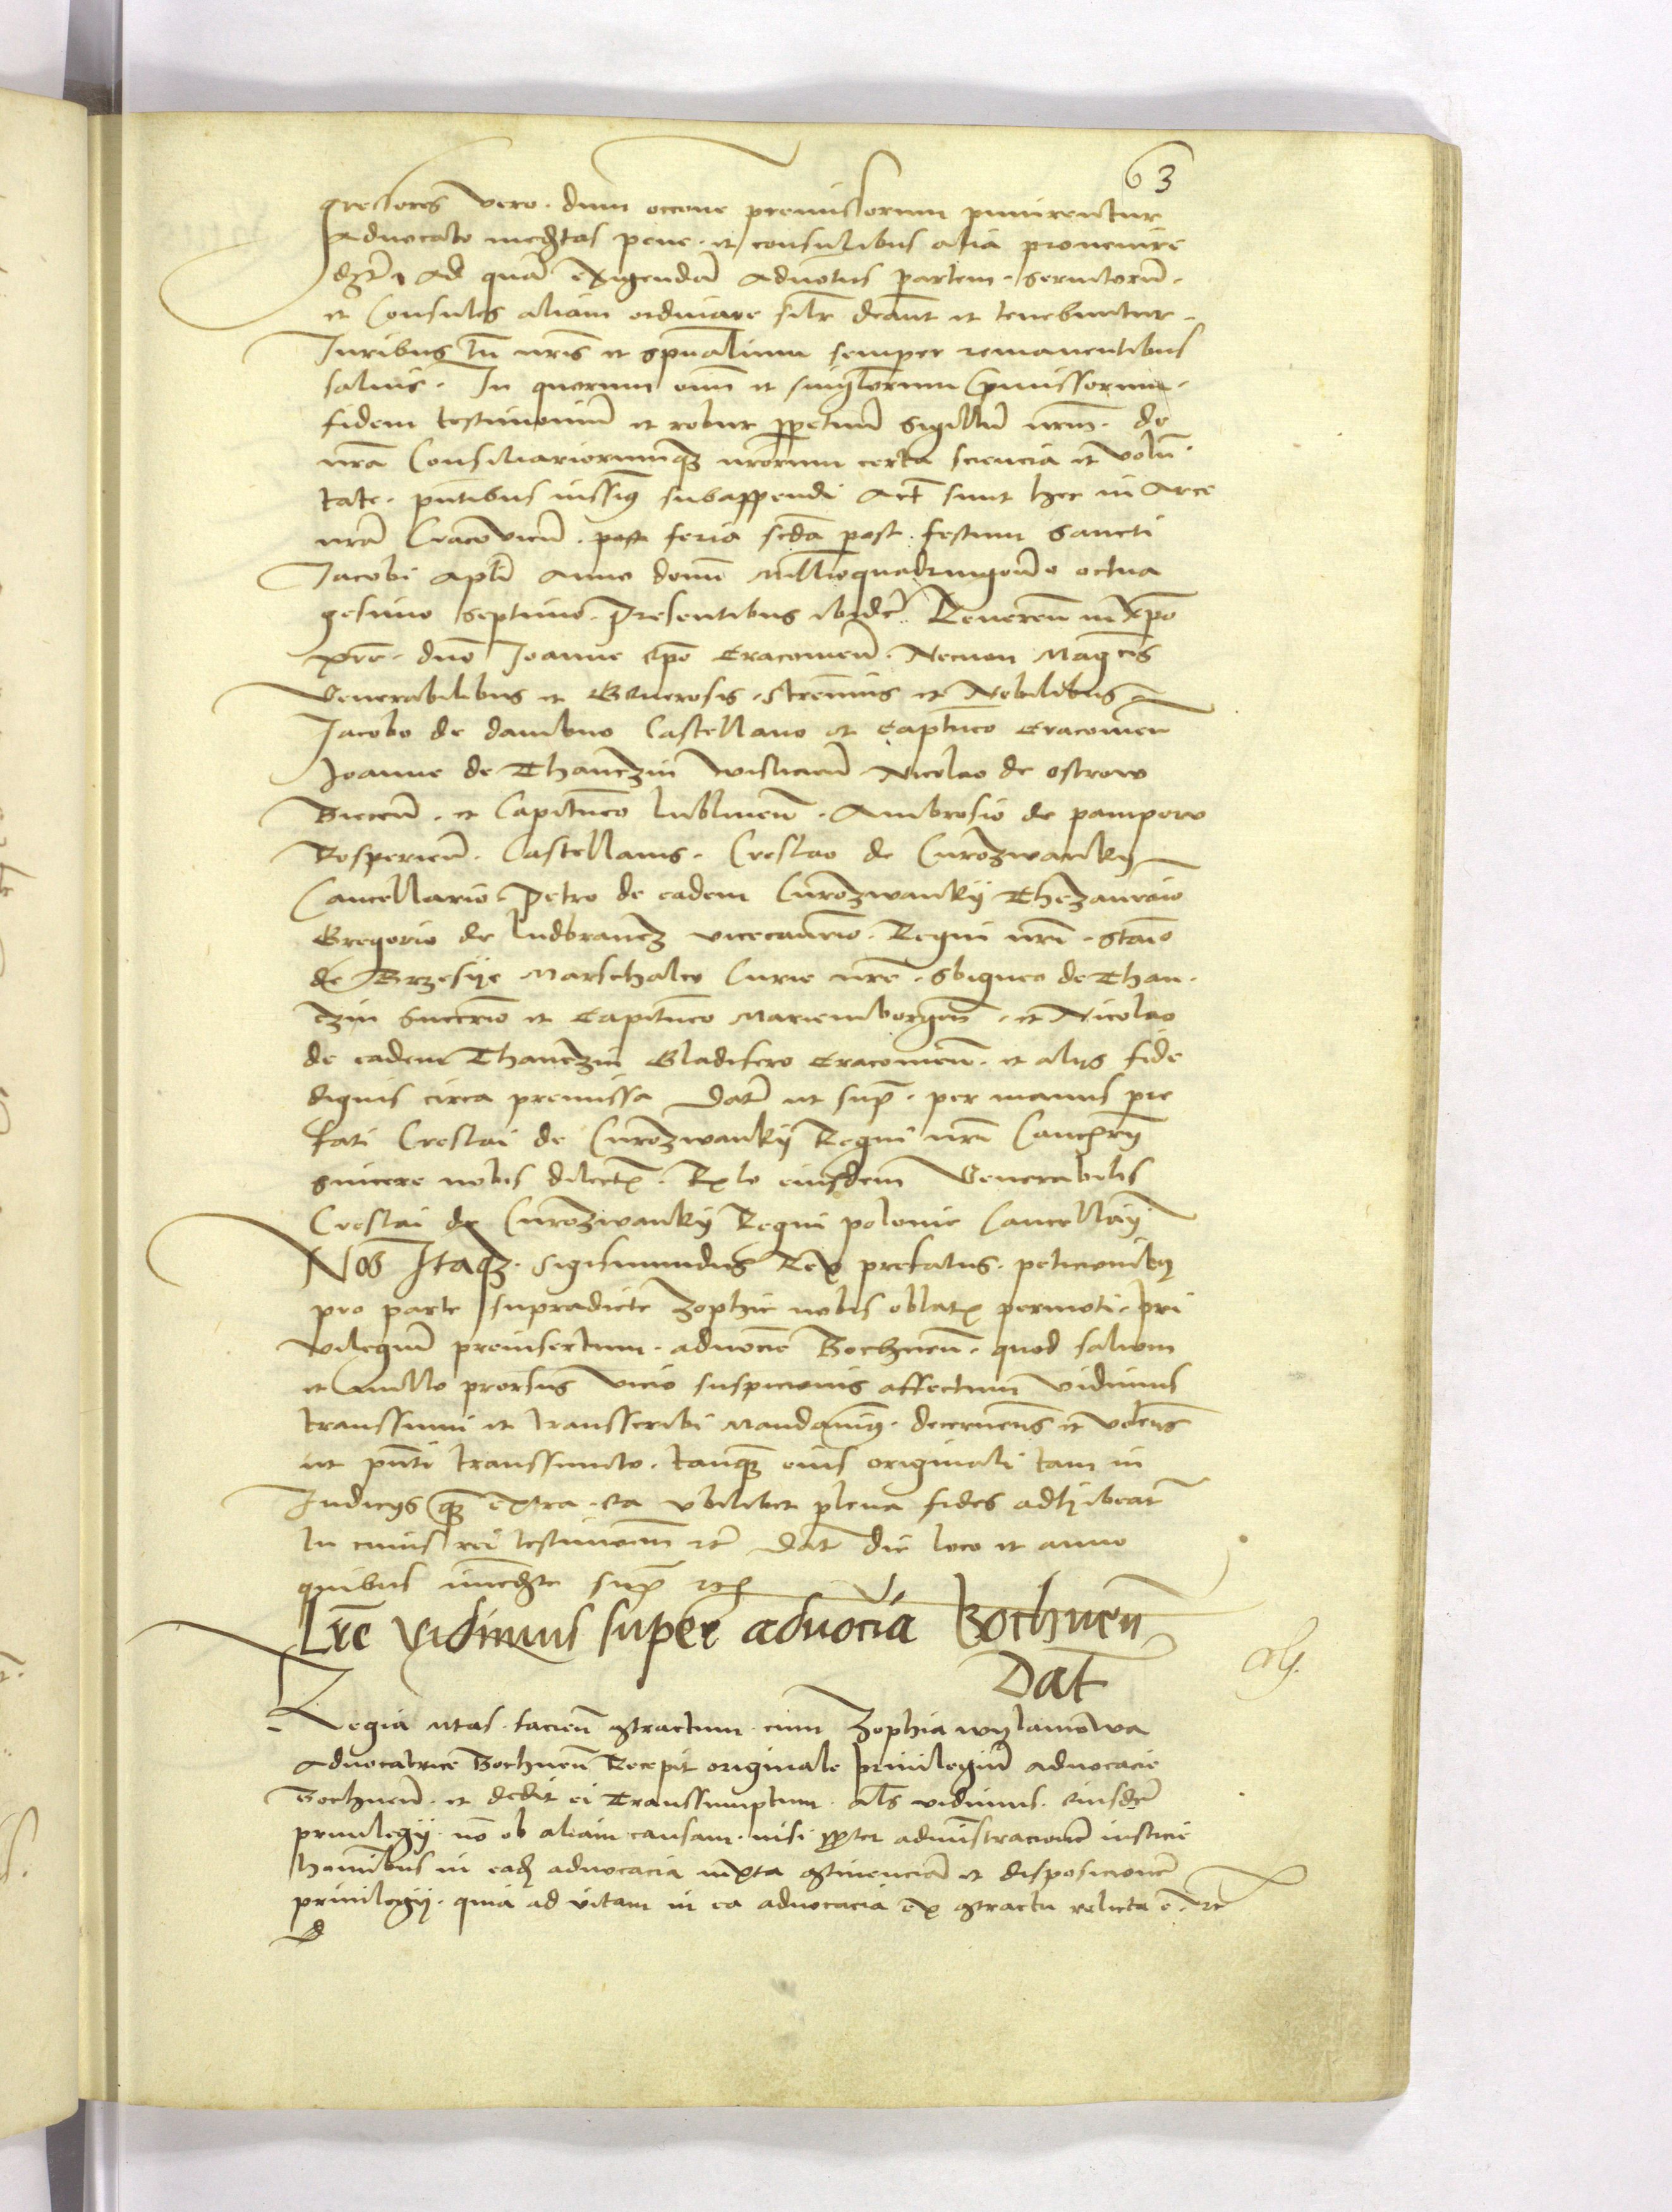 63
gressores vero dum occone premissorum punirentur
Advocato medietas pene et consulibus alia provenire
Ad quam exigendam Advocatus partem servitorum
et Consules aliam ordinare silr debeant et tenebuntur
Iuribus tn nris et spualium semper remanentibus
salvis. In quorum oim et singulorum premissorum
fidem testimonium et robur perpetuum Sigillum nrm de
nra Consiliariorumque nrorum certa sciencia et volun
tate pntibus iussimus subappendi Act sunt hec in Arce
nra Cracovien. post feria scda post festum Sancti
Iacobi Apli Anno domi Millioquadringento octua
gesimo Septimo. Presentibus ibidem Reveren in xpo
pre duo Ioanne Epo Cracovien. Necnon Magcis
Venerabilibus et Generosis strennuis et Nobilibus
Iacobo de dambno Castellano et Captneo Cracovien
Ioanne de Thanczin wislicien Nicolao de ostrow
Biecen. et Capitneo lublinen. Ambrosio de pampowo
Rosperien. Castellanis. Creslao de Curozwanky
Cancellario Petro de eadem Curozwanky Thezaurario
Gregorio de ludbrancz vicecancrio Regni nri. Stanio
de Brzesye Marschalco Curie nre. Sbigneo de Than
czin Succrio et Capitneo Mariemborgen. et Nicolao
de eadem Thanczin Gladifero Cracovien. et aliis fide
dignis circa premissa Datum ut supra. per manus pre
fati Creslai de Curozwanky Regni nri Cancrii
sincere nobis dilecti. Rlo eiusdem Venerabilis
Creslai de Curozwanky Regni polonie Cancellarii
Nos Itaque Sigismundus Rex prefatus peticionibus
pro parte supradicte Zophie nobis oblatis permoti pri
vilegium preinsertum advocie Bochnen. quod salvum
et nullo prorsus vicio suspicionis affectum vidimus
transsumi et transscribi Mandavimus decernens et volens
ut pnti transsumto tanquam eius originali tam in
Iudiciis quam extra ea ubilibet plena fides adhibeatur
In cuius rei testimonium etc Dat die loco et anno
quibus immediate supra etc
Lre vidimus super advocia Bochnen
Dat
Regia Mtas facien contractum cum Zophia wylamowa
Advocatrice Bochnen Recepit originale privilegium advocacie
Bochnen. et dedit ei Transsumptum als vidimus eiusdem
privilegii no ob aliam causam nisi propter administracionem iusticie
hominibus in eadem advocacia iuxta continenciam et disposicionem
privilegii. quia ad vitam in ea advocacia ex contractu relicta e etc